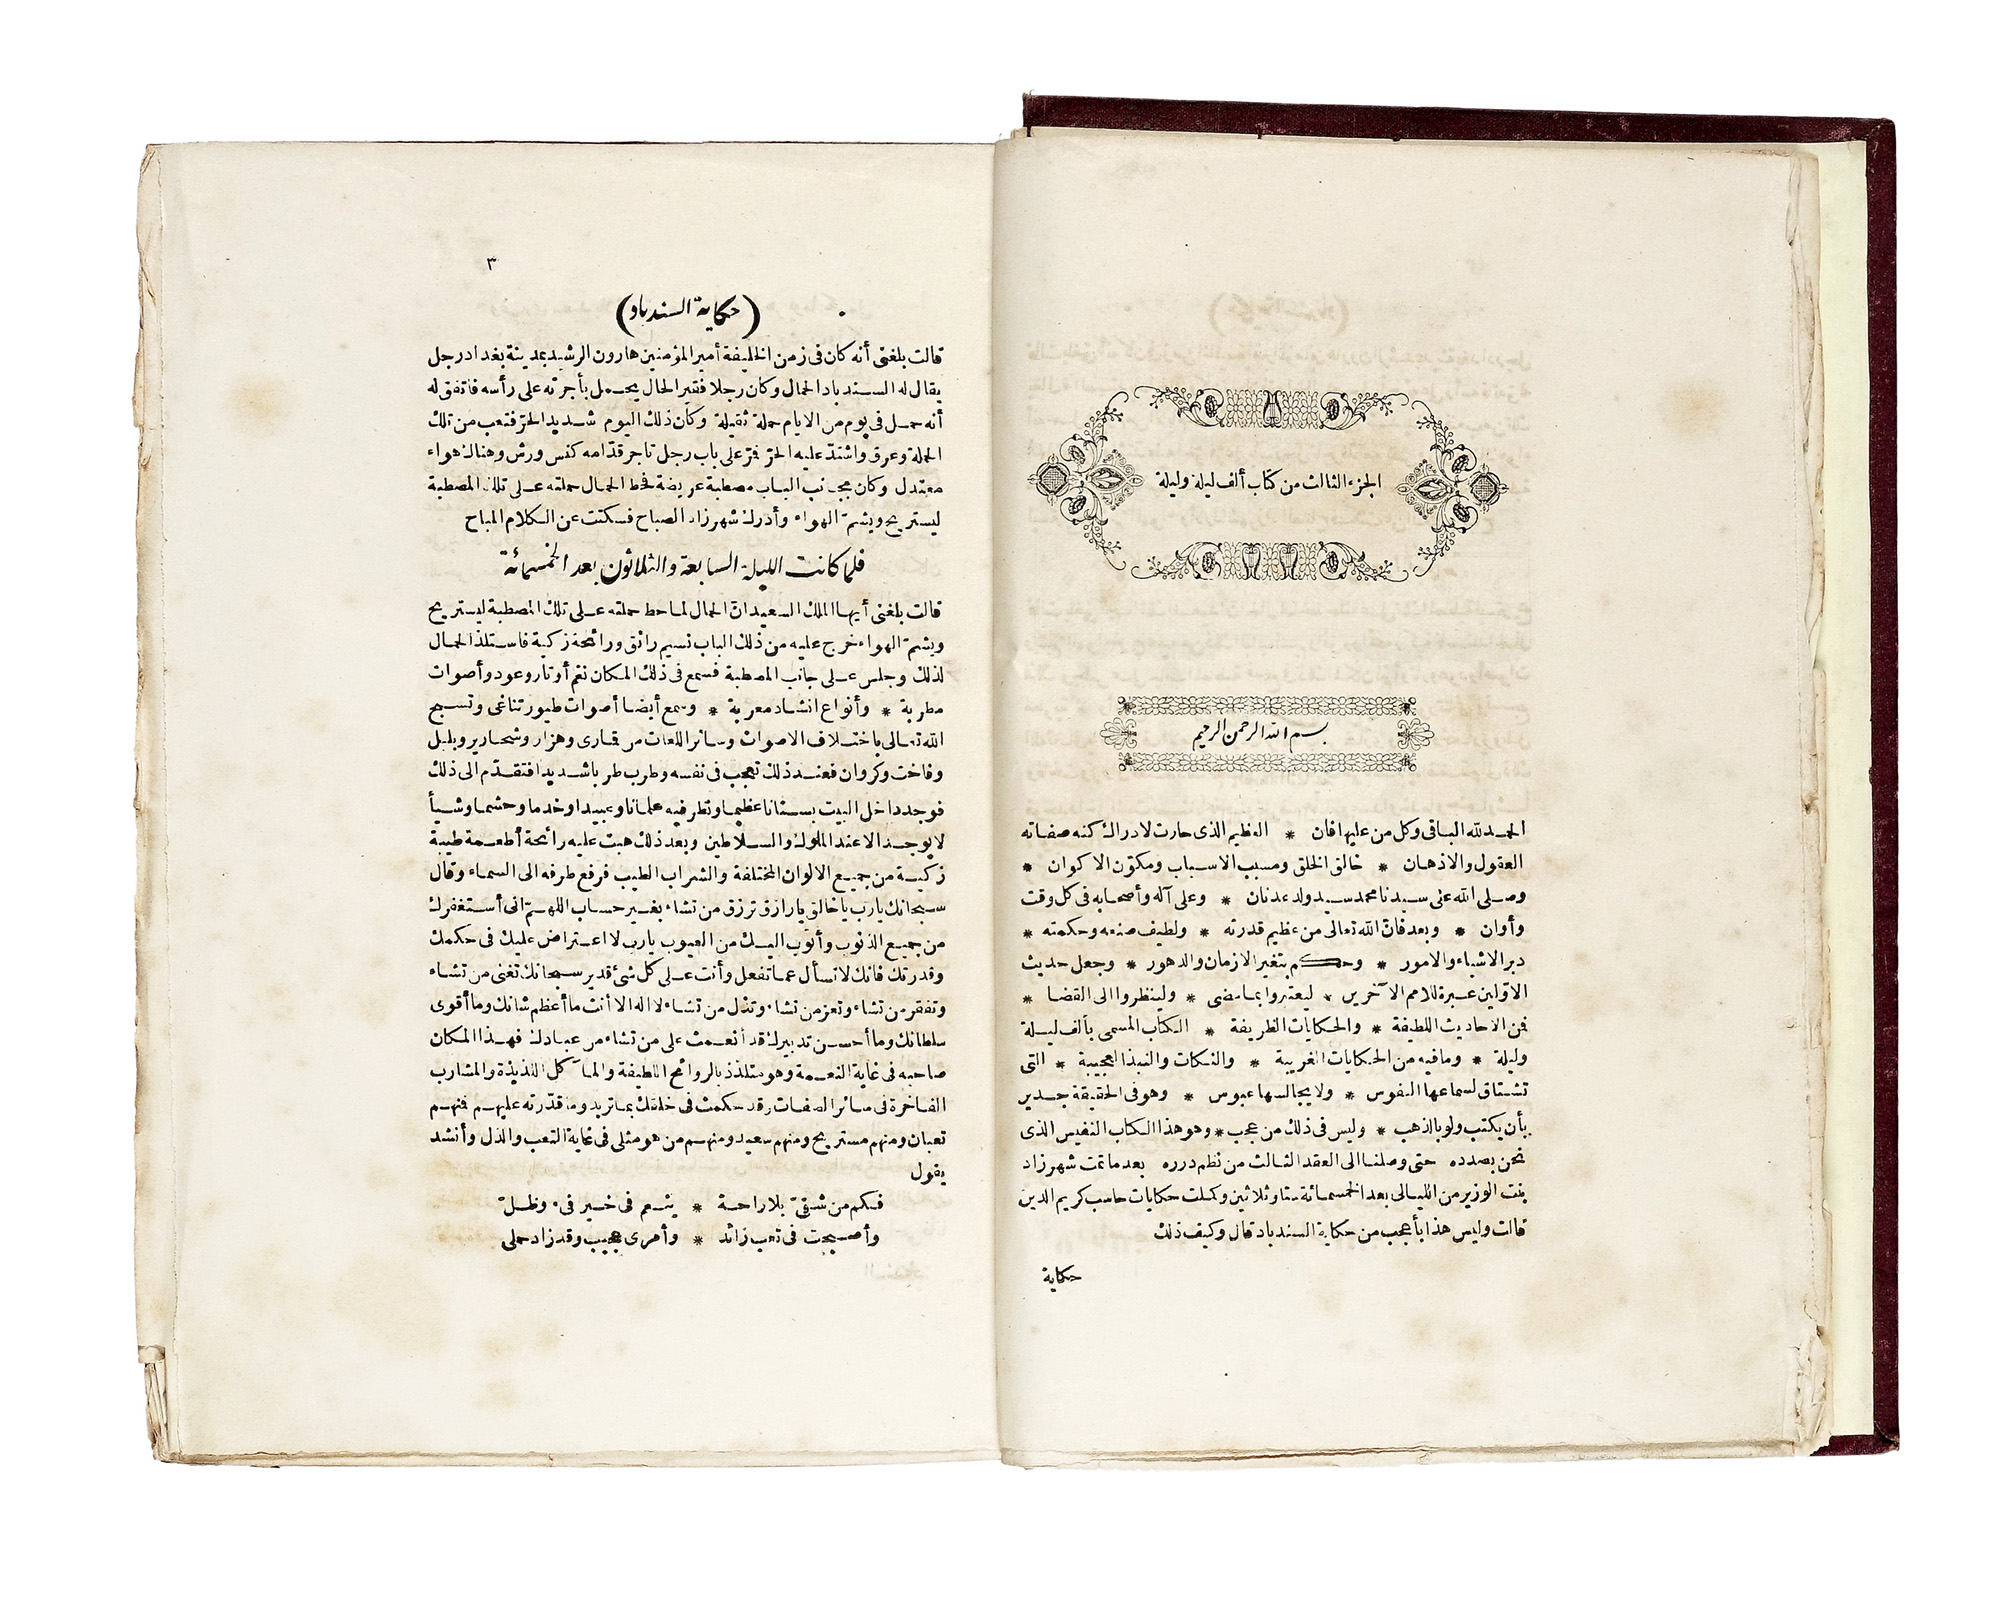 الجزء الثالث من كتاب ألف ليلة وليلة
بسم الله الرحمن الرحيم
الحمد لله الباقى وكل من عليها فان * العظيم الذى حارت لادراك كنه صفاته
العقول والاذهان * خالق الخلق ومسبب الاسباب ومكوّن الاكوان *
وصلى الله على سيدنا محمد سيد ولد عدنان * وعلى آله وأصحابه فى كل وقت
وأوان * وبعد فان الله تعالى من عظيم قدرته * ولطيف صنعه وحكمته *
دبر الاشياء والامور * وحكم بتغير الازمان والدهور * وجعل حديث
الاوّلين عبرة للامم الآخرين * ليعتبروا بما مضى * ولينظروا الى القضا *
فمن الاحاديث اللطيفة * والحكايات الظريفة * الكتاب المسمى بألف ليلة
وليلة * ومافيه من الحكايات الغريبة * والنكات والنبذ العجيبة * التى
تشتاق لسماعها النفوس * ولا يجالسها عبوس * وهو فى الحقيقة جدير
بأن يكتب ولو بالذهب * وليس فى ذلك من عجب * وهو هذا الكتاب النفيس الذى
نحن بصدده حتى وصلنا الى العقد الثالث من نظم درره بعد ماتمت شهرزاد
بنت الوزير من الليالى بعد الخمسمائة ستا وثلاثين وكملت حكايات حاسب كريم الدين
قالت وليس هذا بأعجب من حكاية السندباد قال وكيف ذلك
حكاية
٣
(حكاية السندباد)
قالت بلغنى أنه كان فى زمن الخليفة أمير المؤمنين هارون الرشيد بمدينة بغداد رجل
يقال له السندباد الحمال وكان رجلا فقير الحال يحمل بأجرته على رأسه فاتفق له
أنه حمل فى يوم من الايام حملة ثقيلة وكان ذلك اليوم شديد الحرّ فتعب من تلك
الحملة وعرق واشتدّ عليه الحرّ فمرّ على باب رجل تاجر قدّامه كنس ورش وهناك هواء
معتدل وكان بجانب الباب مصطبة عريضة فحط الحمال حملته على تلك المصطبة
ليستريح ويشمّ الهواء وأدرك شهرزاد الصباح فسكتت عن الكلام المباح
فلما كانت الليلة السابعة والثلاثون بعد الخمسمائة
قالت بلغنى أيها الملك السعيد انّ الحمال لما حط حملته على تلك المصطبة ليستريح
ويشمّ الهواء خرج عليه من ذلك الباب نسيم رائق ورائحة زكية فاستلذ الحمال
لذلك وجلس على جانب المصطبة فسمع فى ذلك المكان نغم أوتار وعود وأصوات
مطربة * وأنواع انشاد معربة * وسمع أيضا أصوات طيور تناغى وتسبح
الله تعالى باختلاف الاصوات وسائر اللغات من قمارى وهزار وشحارير وبلبل
وفاخت وكروان فعند ذلك تعجب فى نفسه وطرب طربا شديدا فتقدّم الى ذلك
فوجد داخل البيت بستانا عظيما ونظر فيه غلمانا وعبيدا وخدما وحشما وشيأ
لا يوجد الا عند الملوك والسلاطين وبعد ذلك هبت عليه رائحة أطعمة طيبة
زكية من جميع الالوان المختلفة والشراب الطيب فرفع طرفه الى السماء وقال
سبحانك يارب ياخالق يارازق ترزق من تشاء بغير حساب اللهمّ انى أستغفرك
من جميع الذنوب وأتوب اليك من العيوب يارب لا اعتراض عليك فى حكمك
وقدرتك فانك لا تسأل عما تفعل وأنت على كل شئ قدير سبحانك تغنى من تشاء
وتفقر من تشاء وتعز من تشاء وتذل من تشاء لا اله الا أنت ما أعظم شانك وما أقوى
سلطانك وما أحسن تدبيرك قد أنعمت على من تشاء من عبادك فهذا المكان
صاحبه فى غاية النعمة وهو متلذذ بالروائح اللطيفة والمآكل اللذيذة والمشارب
الفاخرة فى سائر الصفات وقد حكمت فى خلقك بما تريد وما قدّرته عليهم فمنهم
تعبان ومنهم مستريح ومنهم سعيد ومنهم من هو مثلى فى غاية التعب والذل وأنشد
يقول
فكم من شقىّ بلا راحة * ينعم فى خير فىء وظلّ
وأصبحت فى تعب زائد * وأمرى عجيب وقد زاد حملى